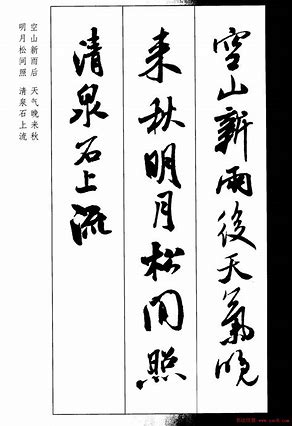 空山新雨後天氣晚
来秋明月松间照
清泉石上流
空山新雨后 天气晚来秋
明月松间照 清泉石上流